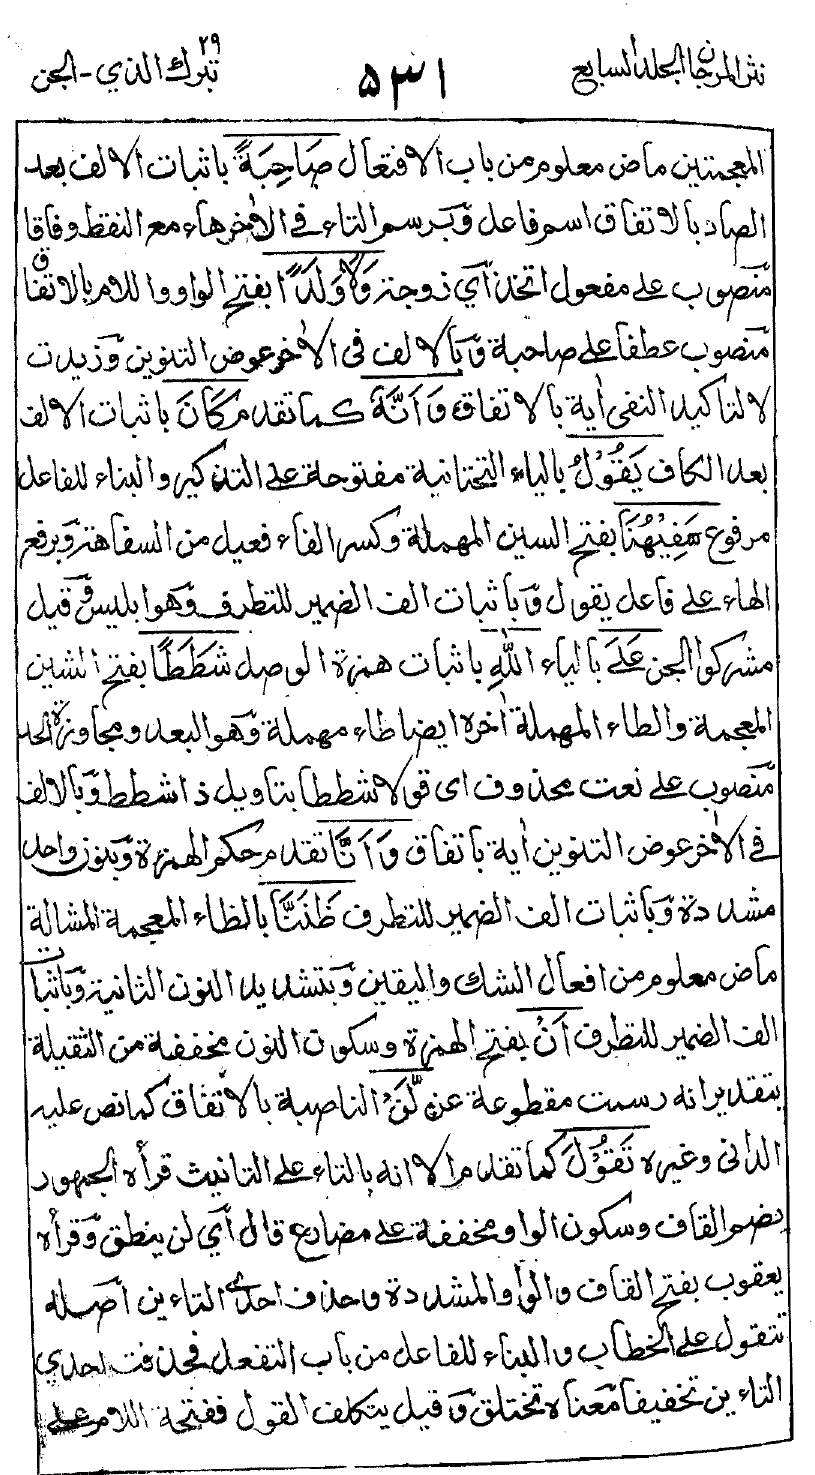 نثر المرجان الجلد السابع ٥٣١ تبرك الذي - الجن ٢٩
المعجمتين ماض معلوم من باب الافتعال صَاحِبَةً باثبات الالف بعد
الصاد بالاتفاق اسم فاعل وبرسم التاء في الاٰخر هاء مع النقط وفاقا
منصوب على مفعول اتخذ أي زوجة وَلَا وَلَدًا بفتح الواو واللام بالاتفاق
منصوب عطفا على صاحبة وبالالف في الاٰخر عوض التنوين وزيدت
لا لتاكيد النفي اٰية بالاتفاق وَاَنَّهٗ كما تقدم كَانَ باثبات الالف
بعد الكاف يَقُوْلُ بالياء التحتانية مفتوحة على التذكير والبناء للفاعل
مرفوع سَفِيْهُنَا بفتح السين المهملة وكسر الفاء فعيل من السفاهة وبرفع
الهاء على فاعل يقول وباثبات الف الضمير للتطرف وهو ابليس وقيل
مشركوا الجن عَلَى بالياء اللّٰهِ باثبات همزة الوصل شَطَطًا بفتح الشين
المعجمة والطاء المهملة اٰخره ايضا طاء مهملة وهو البعد ومجاوزة الحد
منصوب على نعت محذوف اى قولا شططا بتاويل ذا شطط وبالالف
في الاٰخر عوض التنوين اٰية باتفاق وَاَنَّا تقدم حكم الهمزة وبنون واحد
مشددة وباثبات الف الضمير للتطرف ظَنَنَّا بالظاء المعجمة المشالة
ماض معلوم من افعال الشك واليقين وبتشديد النون الثانية وباثبات
الف الضمير للتطرف اَنْ بفتح الهمزة وسكون النون مخففة من الثقيلة
بتقدير انه رسمت مقطوعة عن لَّنْ الناصبة بالاتفاق كما نص عليه
الداني وغيره تَقُوْلَ كما تقدم الا انه بالتاء على التانيث قرأه الجمهور
بضم القاف وسكون الواو مخففة على مضارع قال أي لن ينطق وقرأه
يعقوب بفتح القاف والواو المشددة وحذف احدى التاءين اصله
تتقول على الخطاب والبناء للفاعل من باب التفعل فحذفت احدي
التاءين تخفيفا معناه تختلق وقيل يتكلف القول ففتحة اللام على